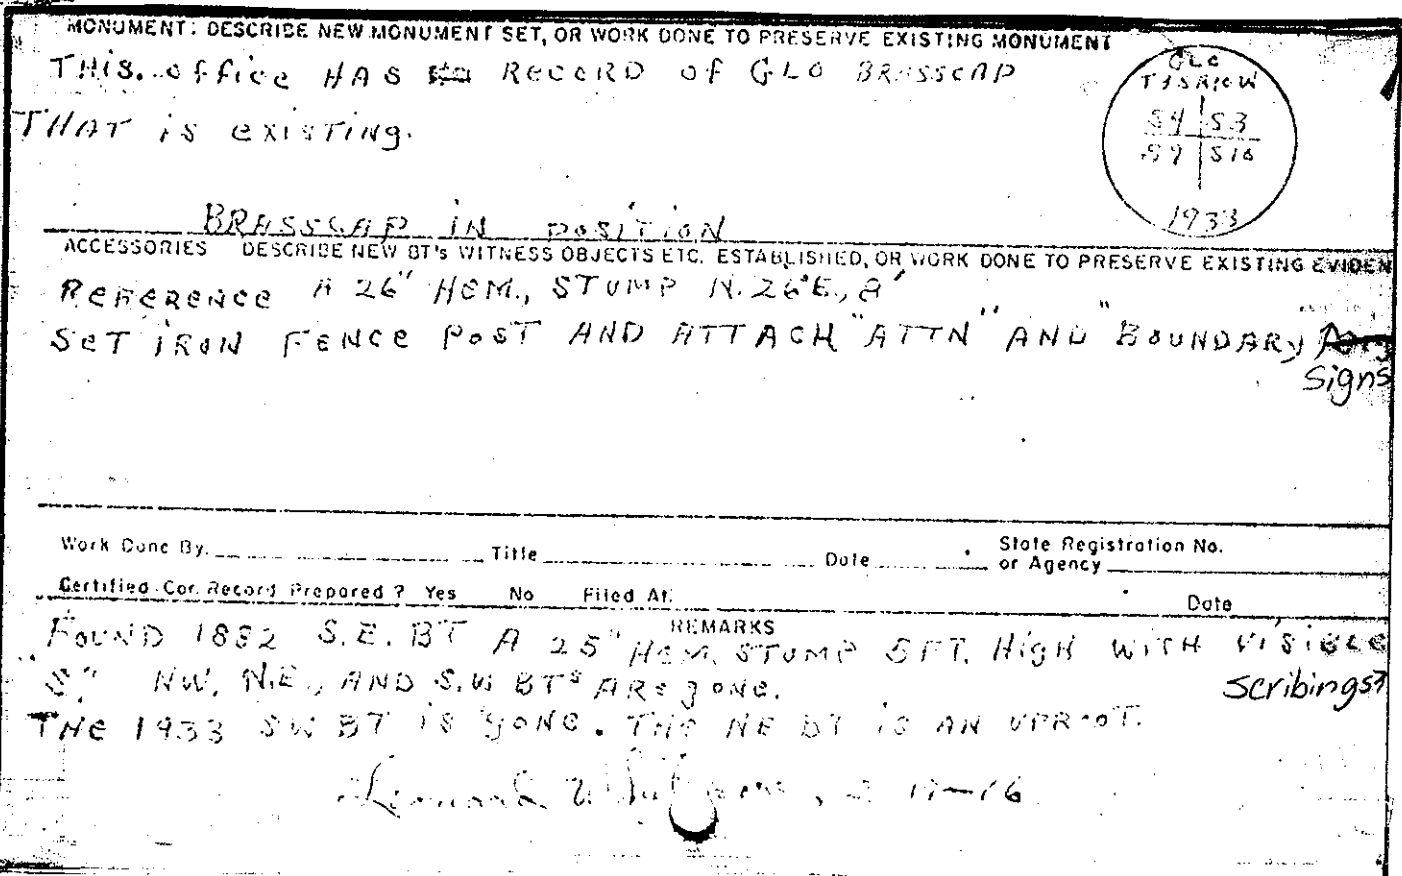 MONUMENT: DESCRIBE NEW MONUMENT SET, OR WORK DONE TO PRESERVE EXISTING MONUMENT
THIS. office HAS RECORD of GLO BRASSCAP
THAT is existing.
GLO
S4 S3
S9 S10
1933
BRASSCAP IN POSITION
ACCESSORIES DESCRIBE NEW BT's WITNESS OBJECTS ETC. ESTABLISHED, OR WORK DONE TO PRESERVE EXISTING EVIDEN
REFERENCE A 26" HEM., STUMP N.26°E., 8'
SET IRON FENCE POST AND ATTACH "ATTN" AND "BOUNDARY"
Signs
Work Done By. Title Date State Registration No.
or Agency
Certified Cor. Record Prepared ? Yes No Filed At: Date
REMARKS
FOUND 1882 S.E. BT A 25" HEM. STUMP 5FT. HIGH WITH VISIBLE
"S." NW, N.E., AND S.W BTs ARE gONE. Scribings?
THE 1933 SW BT IS gONE. THE NE BT IS AN UPROOT.